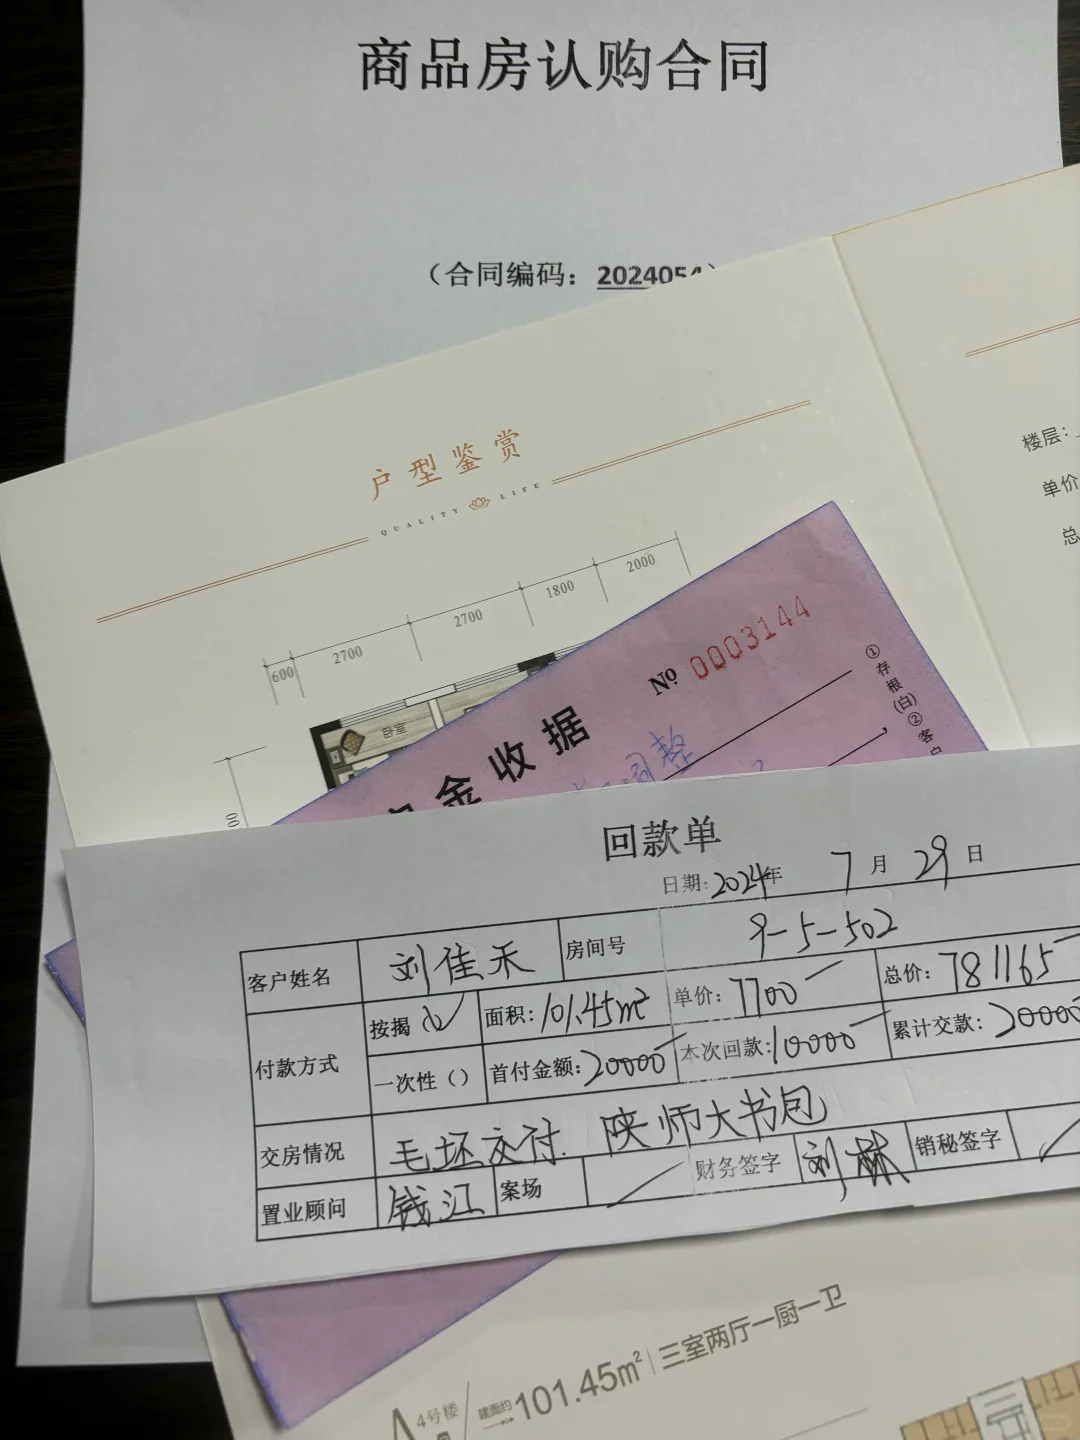 商品房认购合同
（合同编码：2024054）
户型鉴赏
QUALITY LIFE
楼层：
单价
总
600 2700 2700 1800 2000
№ 0003144
金收据
①存根(白)②客户
回款单
日期：2024年 7月 29日
客户姓名 刘佳禾 房间号 9-5-502
付款方式 按揭 (√) 面积：101.45m² 单价：7700 总价：781165
一次性（） 首付金额：20000 本次回款：10000 累计交款：20000
交房情况 毛坯交付. 陕师大书包
置业顾问 钱江 案场 财务签字 刘 销秘签字
A 4号楼 建面约101.45m² 三室两厅一厨一卫